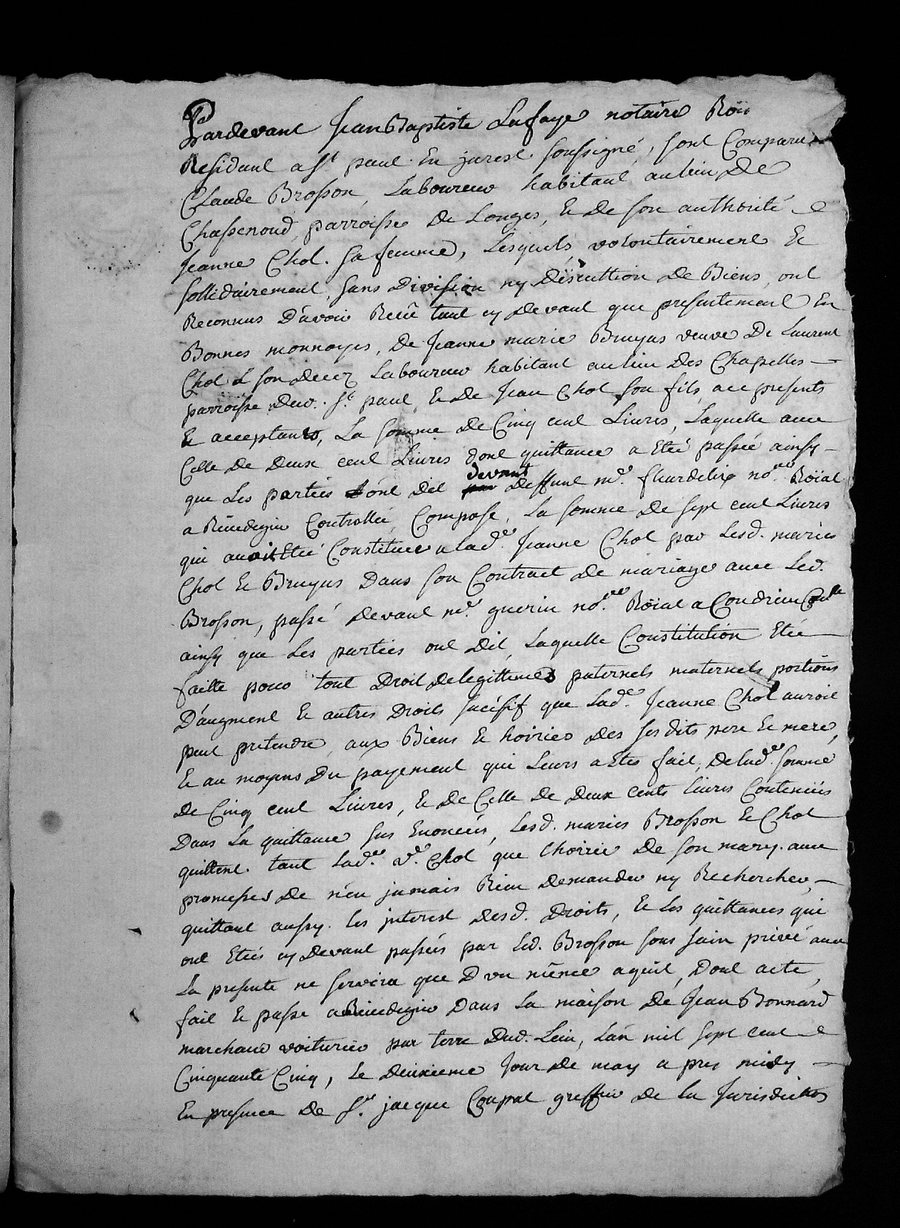 Pardevant Jean Baptiste Lafaye notaire Roï
Residant a St paul En jarest soussigné, sont Comparu
Claude Brosson, Laboureur habitant au lieu De
Chassenoud, parroisse De Longes, & De son authorité
Jeanne Chol. sa femme, Lesquels volontairement Et
sollidairement, sans Division ny Discuttion De Biens, ont
Reconnus D'avoir Recü tant cy devant que presentement En
Bonnes monnoyes, De Jeanne marie Bruyas veuve De Laurent
Chol a son decez Laboureur habitant au lieu Des Chapelles
parroisse dud. St. paul, Et De Jean Chol son fils, acc presents
Et acceptants, La somme De Cinq cent Livres, Laquelle avec
Celle De Deux cent Livres dont quittance a Eté passée ainsy
que Les parties ont dit devant Deffunt me. fleurdelix nore. Roïal
a Rivedegier Controllée, Compose, La somme De sept cent Livres
qui avoit Eté Constituée a lade. Jeanne Chol par Lesd. maries
Chol Et Bruyas Dans son Contract De mariage avec Led.
Brosson, passé Devant me. guerin nore. Roïal a Condrieu Conlle
ainsy que Les parties ont Dit, Laquelle Constitution Etée
faitte pour tout Droit De legittimes paternels maternels portions
D'augment Et autres Droits sucésif que Lade. Jeanne Chol auroit
peut pretendre, aux Biens Et hoiries Des sesdits pere Et mere,
Et au moyens Du payement que Leurs a Etés fait, De lade. somme
De Cinq cent Livres, Et De Celle De Deux cents Livres Contenües
Dans La quittance sus Enoncées, Lesd. maries Brosson Et Chol
quittent tant Lade. ve. Chol que L'hoirie De son mary. avec
promesses De n'en jamais Rien Demander ny Rechercher,
quittant aussy. les interest desd. Droits, Et Les quittances qui
ont Etées cy Devant passées par Led. Brosson sous sain privé avec
La presente ne servira que D'vn meme aquit, Dont acte,
fait Et passe a Rivedegier Dans La maison De Jean Bonnard
marchand voiturier par terre Dud. Leiu, L'an mil sept cent
Cinquante Cinq, Le deuxieme Jour De may a pres midy
En presence De Sr. jacque Coupat greffier De La Jurisdiction